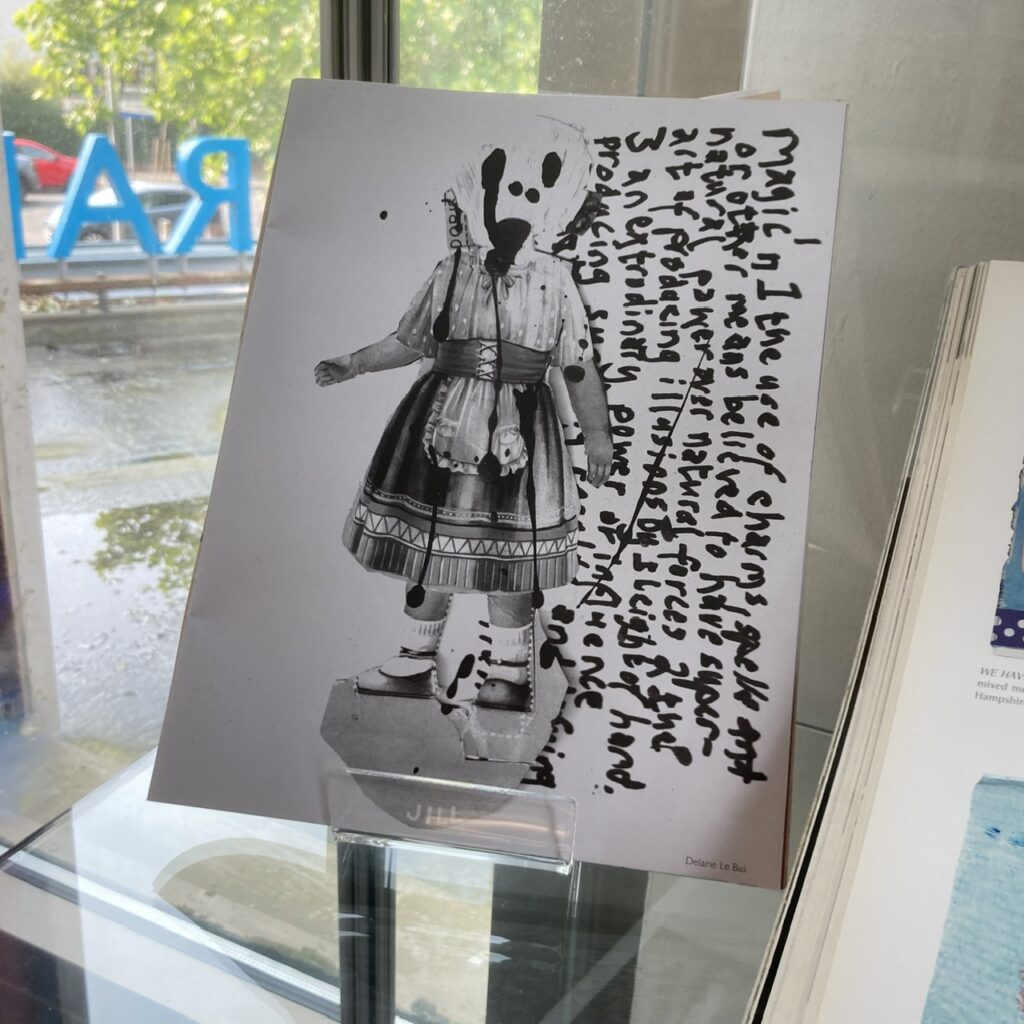 RA
DORIS
magic n 1 the use of charms, spells
or other means believed to have super-
natural power over natural forces 2 the
art of producing illusions by sleight of hand.
3 an extrodinary power or influence
producing
and
JILL
Delaine Le Bas
WE HAV
mixed me
Hampshir